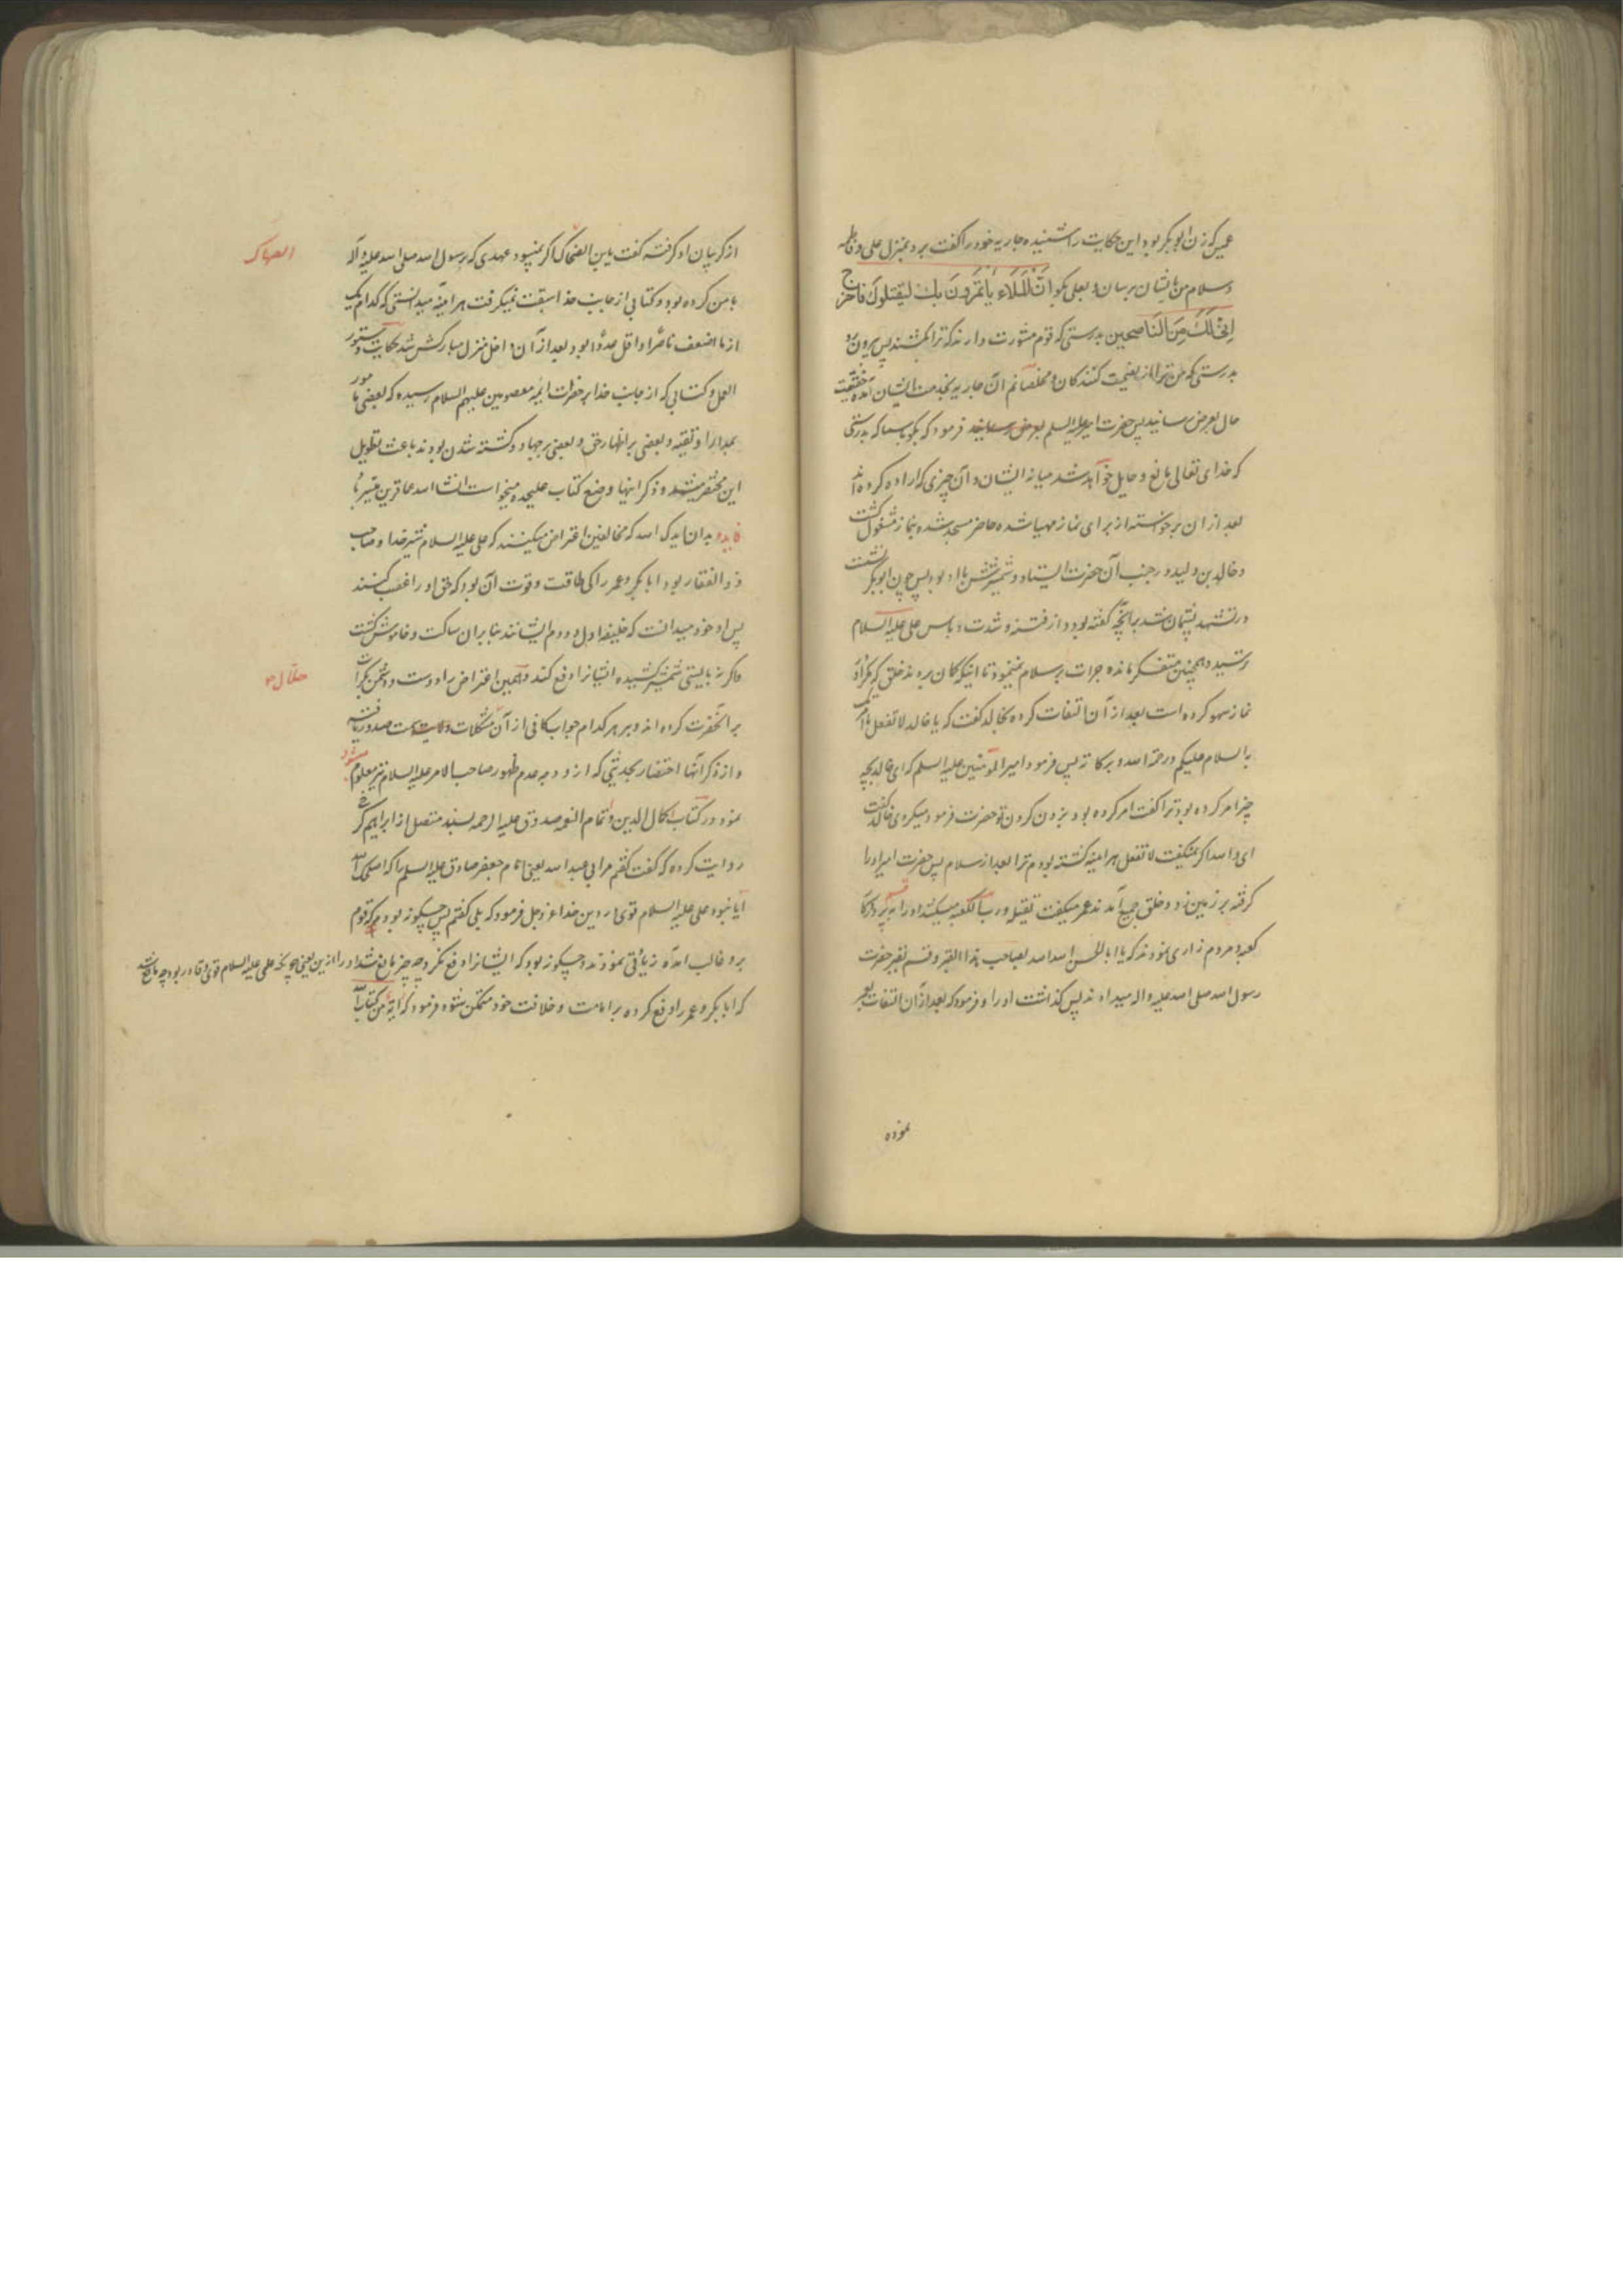 عمیس که زن ابوبکر بود این حکایت را شنیده جاریه خود را گفت برو بمنزل علی و فاطمه
و سلام من بایشان برسان و بعلی بگو اِنَّ الْمَلَاءَ یَأتَمِرُونَ بِکَ لِیَقتُلُوکَ فَاخرُج
اِنِّی لَکَ مِنَ النَّاصِحین بدرستی که قوم مشورت دارند که ترا بکشند پس بیرون رو
بدرستی که من ترا از نصیحت کنندگان و مخلصانم آن جاریه بخدمت ایشان آمده حقیقت
حال بعرض رسانید پس حضرت امیر علیه السلم فرمود که بگو باسما که بدرستی
که خدای تعالی مانع و حایل خواهد شد میانه ایشان و آن چیزی که اراده کرده اند
بعد از ان برخواسته از برای نماز مهیا شده حاضر مسجد شده بنماز مشغول گشت
و خالد بن ولید در جنب آن حضرت ایستاد و شمشیرش با او بود پس چون ابوبکر نشست
در تشهد پشیمان شد بر آنچه گفته بود و از فتنه و شدت و باس علی علیه السلام
ترسید و همچنین متفکر مانده جرات بر سلام نمینمود تا اینکه گمان بردند خلق که مگر او
نماز سهو کرده است بعد از آن التفات کرده بخالد گفت که یا خالد لا تفعل ما امرتک
به السلام علیکم و رحمة الله و برکاته پس فرمود امیر المؤمنین علیه السلم که ای خالد بچه
چیز امر کرده بود ترا گفت امر کرده بود بزدن گردن تو حضرت فرمود میکردی خالد گفت
ای والله اگر نمیگفت لا تفعل هر آینه کشته بودم ترا بعد از سلام پس حضرت امیر او را
گرفته بر زمین زد و خلق جمع آمدند عمر میگفت تقتله و رب الکعبه میکشد او را به پروردگار قسم
کعبه و مردم زاری نمودند که یا ابا الحسن الله الله بصاحب هذا القبر و قسم بقبر حضرت
رسول الله صلی الله علیه و اله میدادند پس گذاشت او را و فرمود که بعد از آن التفات بعمر
نموده
از گریبان او گرفته گفت یا بن الضحاک اگر نمیبود عهدی که رسول الله صلی الله علیه و آله
الصهاک
با من کرده بود و کتابی از جانب خدا سبقت نمیگرفت هر آینه میدانستی که کدام یک
از ما اضعف ناصرا و اقل عددا بود بعد از آن داخل منزل مبارکش شد حکایت دستور
العمل و کتابی که از جانب خدا بر حضرات ایمه معصومین علیهم السلام رسیده که بعضی مامور
بمدارا و تقیه و بعضی بر اظهار حق و بعضی بر جهاد و کشته شدن بودند باعث تطویل
این مختصر میشد و ذکر اینها وضع کتاب علیحده میخواست انشا الله عنقریب میسر باد
فایده بدان ایدک الله که مخالفین اعتراض میکینند که علی علیه السلام شیر خدا و صاحب
ذو الفقار بود ابابکر و عمر را کی طاقت و قوت آن بود که حق او را غصب کنند
پس او خود میدانست که خلیفه اول و دوم ایشانند بنا بران ساکت و خاموش گشت
و اگر نه بایستی شمشیر کشیده ایشانرا دفع کند و همین اعتراض را دوست و دشمن بکرات
بر آنحضرت کرده اند و بر هر کدام جواب کافی از آن مشکلات سمت صدور یافته
و از ذکر آنها اختصار بحدیثی که از و وجه عدم ظهور صاحب الامر علیه السلام نیز معلوم میشود
نمود در کتاب اکمال الدین و اتمام النعمه صدوق علیه الرحمه بسند متصل از ابراهیم کرخی
روایت کرده که گفت گفتم مر ابی عبد الله یعنی امام جعفر صادق علیه السلم را که اصلحک الله
آیا نبود علی علیه السلام قوی در دین خدا عز و جل فرمود که بلی گفتم پس چگونه بود که قوم
بر و غالب آمده زیادتی نمودند و چگونه بود که ایشانرا دفع نکرد و چه چیز مانع شد او را از این یعنی چونکه علی علیه السلام قوی و قادر بود چه مانع شد
که ابابکر و عمر را دفع کرده بر امامت و خلافت خود متمکن شود فرمود که آیة من کتاب الله